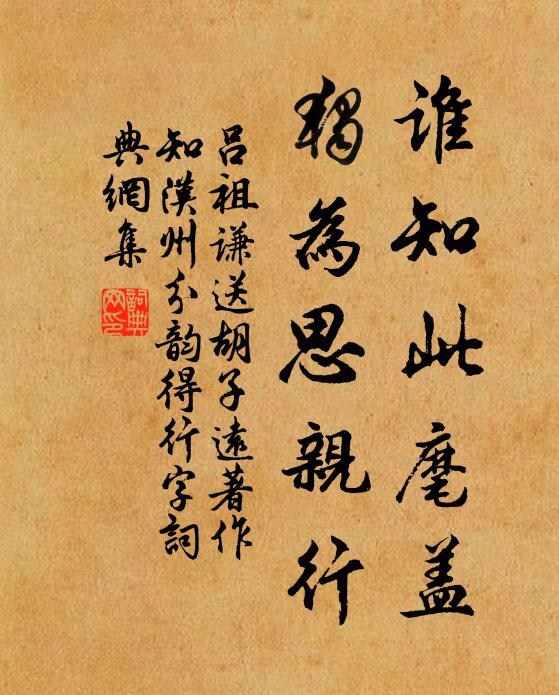 誰知此麾蓋
獨為思親行
呂祖謙送胡子遠著作
知漢州分韵得行字詞
典網集
詞典
网印